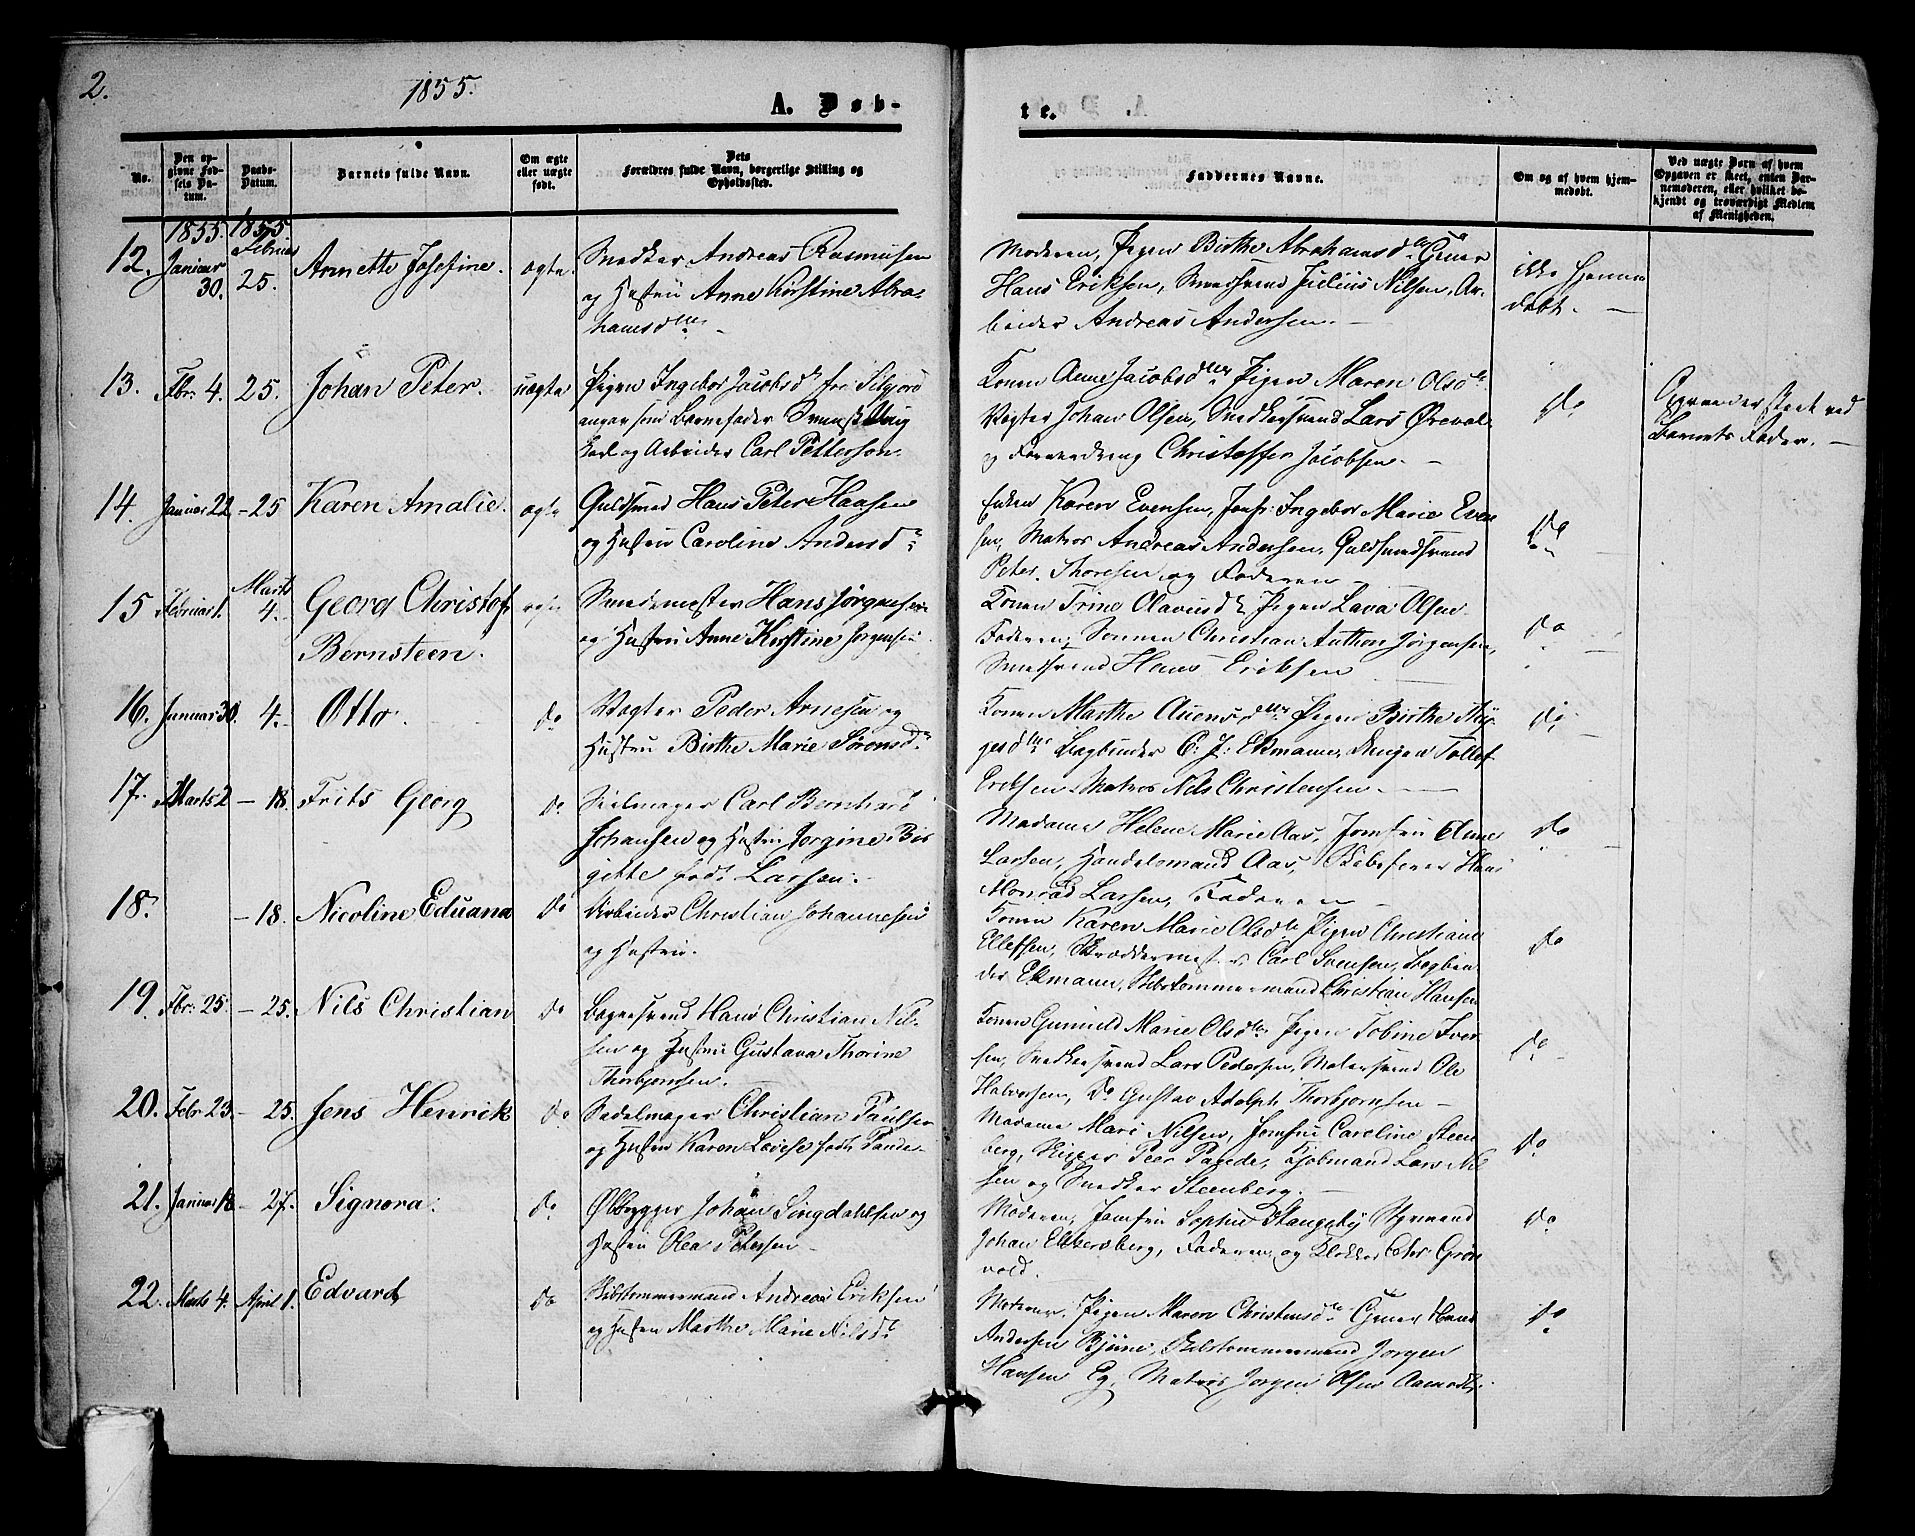 2.
1855.
A. Døb-
te.
No.
Den op-
givne Fød-
sels Da-
tum.
Daabs-
Datum.
Barnets fulde Navn.
Om ægte
eller uægte
født.
Dets
Forældres fulde Navn, borgerlige Stilling og
Opholdssted.
Faddernes Navne.
Om og af hvem hjem-
medøbt.
Ved uægte Børn af hvem
Opgaven er skeet, enten Bar-
nemoderen, eller hvilket be-
kjendt og troværdigt Medlem
af Menigheden.
1855.
1855
12.
Januar
30.
Februar
25.
Annette Josefine.
ægte
Snedker Andreas Rasmusen
og Hustru Anne Kirstine Abra-
hamsdtter. –
Moderen, Pigen Birthe Abrahamsd.
Hans Eriksen, Smedsvend Julius Nilsen, Ar-
beider Andreas Andersen. –
ikke hjemme
døbt. –
13.
Fbr: 4.
25.
Johan Peter.
uægte
Pigen Ingebor Jacobsd.
Barnefader
og Arbeider Carl Petterson
Konen Anne Jacobsd. Pigen Maren Olsd.
Vægter Johan Olsen, Snedkersvend Lars
og Christoffer Jacobsen. –
do
skeet ved
Barnets Fader. –
14.
Januar 22
– 25
Karen Amalie.
ægte
Guldsmed Hans Peter Haasen
og Hustru Caroline Andersd.
Enken Karen Evensen, Jomf: Ingebor Marie Even
sen, Matros Andreas Andersen, Guldsmedsvend
Peter Thoresen og Faderen –
do
15
Februar 1.
Marts
4.
Georg Christof
Bernsteen.
ægte
Smedemester Hans Jørgensen
og Hustru Anne Kirstine Jørgensen
Konen Trine Olavusd. Pigen Lava Olsen
Faderen, Sønnen Christian Anthon Jørgensen,
Smedsvend Hans Eriksen
do
16.
Januar 30.
4.
Otto.
do
Vægter Peder Arnesen og
Hustru Birthe Marie Sørensd.
Konen Marthe Pigen Birthe
Bogbinder C: J: Ekmann, Drengen Tollef
Eriksen, Matros Nils Christensen. –
do
17.
Marts 2
– 18.
Frits Georg
do
Carl Bernhard
Johansen og Hustru Jørgine Bir
gitte født Larsen. –
Madame Helene Marie Aas, Jomfru Anne
Larsen, Handelsmand Aas, Hans
Monrad Larsen, Faderen –
do
18.
– 18.
Nicoline Eduana
do
Arbeider Christian Johannesen
og Hustru.
Konen Karen Marie Olsd. Pigen Christiane
Ellefsen, Skreddermester Carl Svensen, Bogbin-
der Ekmann, Skibstømmermand Christian Hansen
do
19.
Fbr: 25.
– 25.
Nils Christian
do
Bagersvend Hans Christian Nil-
sen og Hustru Gustava Thorine
Thorbjørnsen.
Konen Gunnild Marie Olsd. Pigen Tobine Iver
sen, Snedkersvend Lars Pedersen, Malersvend Ole
Halvorsen, Do Gustav Adolph Thorbjørnsen –
do
20.
Febr 23.
– 25.
Jens Henrik
do
Sadelmager Christian Paulsen
og Hustru Karen Lovise født
Madame Mari Nilsen, Jomfru Caroline Steen
berg, Skipper Peer Lars Nil
sen og Snedker Steenberg. –
do
21.
Januar 18.
– 27.
Signora.
do
Ølbrygger Johan Singdahlsen og
Hustru Olea Petersen –
Moderen, Jomfru Sophie Stangeby Styrmand
Johan Ekkersberg, Faderen, og Klokker Chr Grøn
vold.
do
22.
Marts 4.
April 1.
Edvard
do
Skibstømmermand Andreas Eriksen
og Hustru Marthe Marie Nilsd.
Moderen, Pigen Maren Christensd. Hans
Andersen Skibstømmermand Jørgen
Hansen Eg, Matros Jørgen Olsen
do